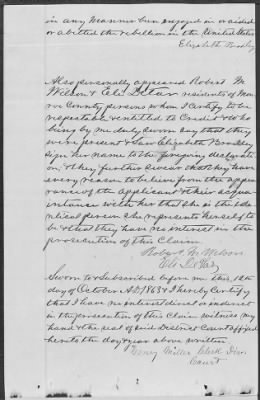 in any manner been engaged in or aided
or abetted the rebellion in the United States
Elizabeth Brosley
Also personally appeared Robert M
Wilson & Eli residents of Mon
roe County persons whom I certify to be
respectable & entitled to Credit & who
being by me duly sworn say that they
were present & saw Elizabeth Brosley
sign her name to the foregoing declarat
ion, & they further swear that they have
every reason to believe from the appea
rance of the applicant & their acqua
intance with her that she is the ide
ntical person she represents himself to
be & that they have no interest in the
prosecution of this Claim.
Robert M Wilson
Eli
Sworn to & Subscribed before me this 12th
day of October AD 1863 & I hereby Certify
that I have no interest direct or indirect
in the prosecution of this Claim witness my
hand & the seal of said District Court affixed
hereto the day & year above written
Henry Miller Clerk Dist
Court